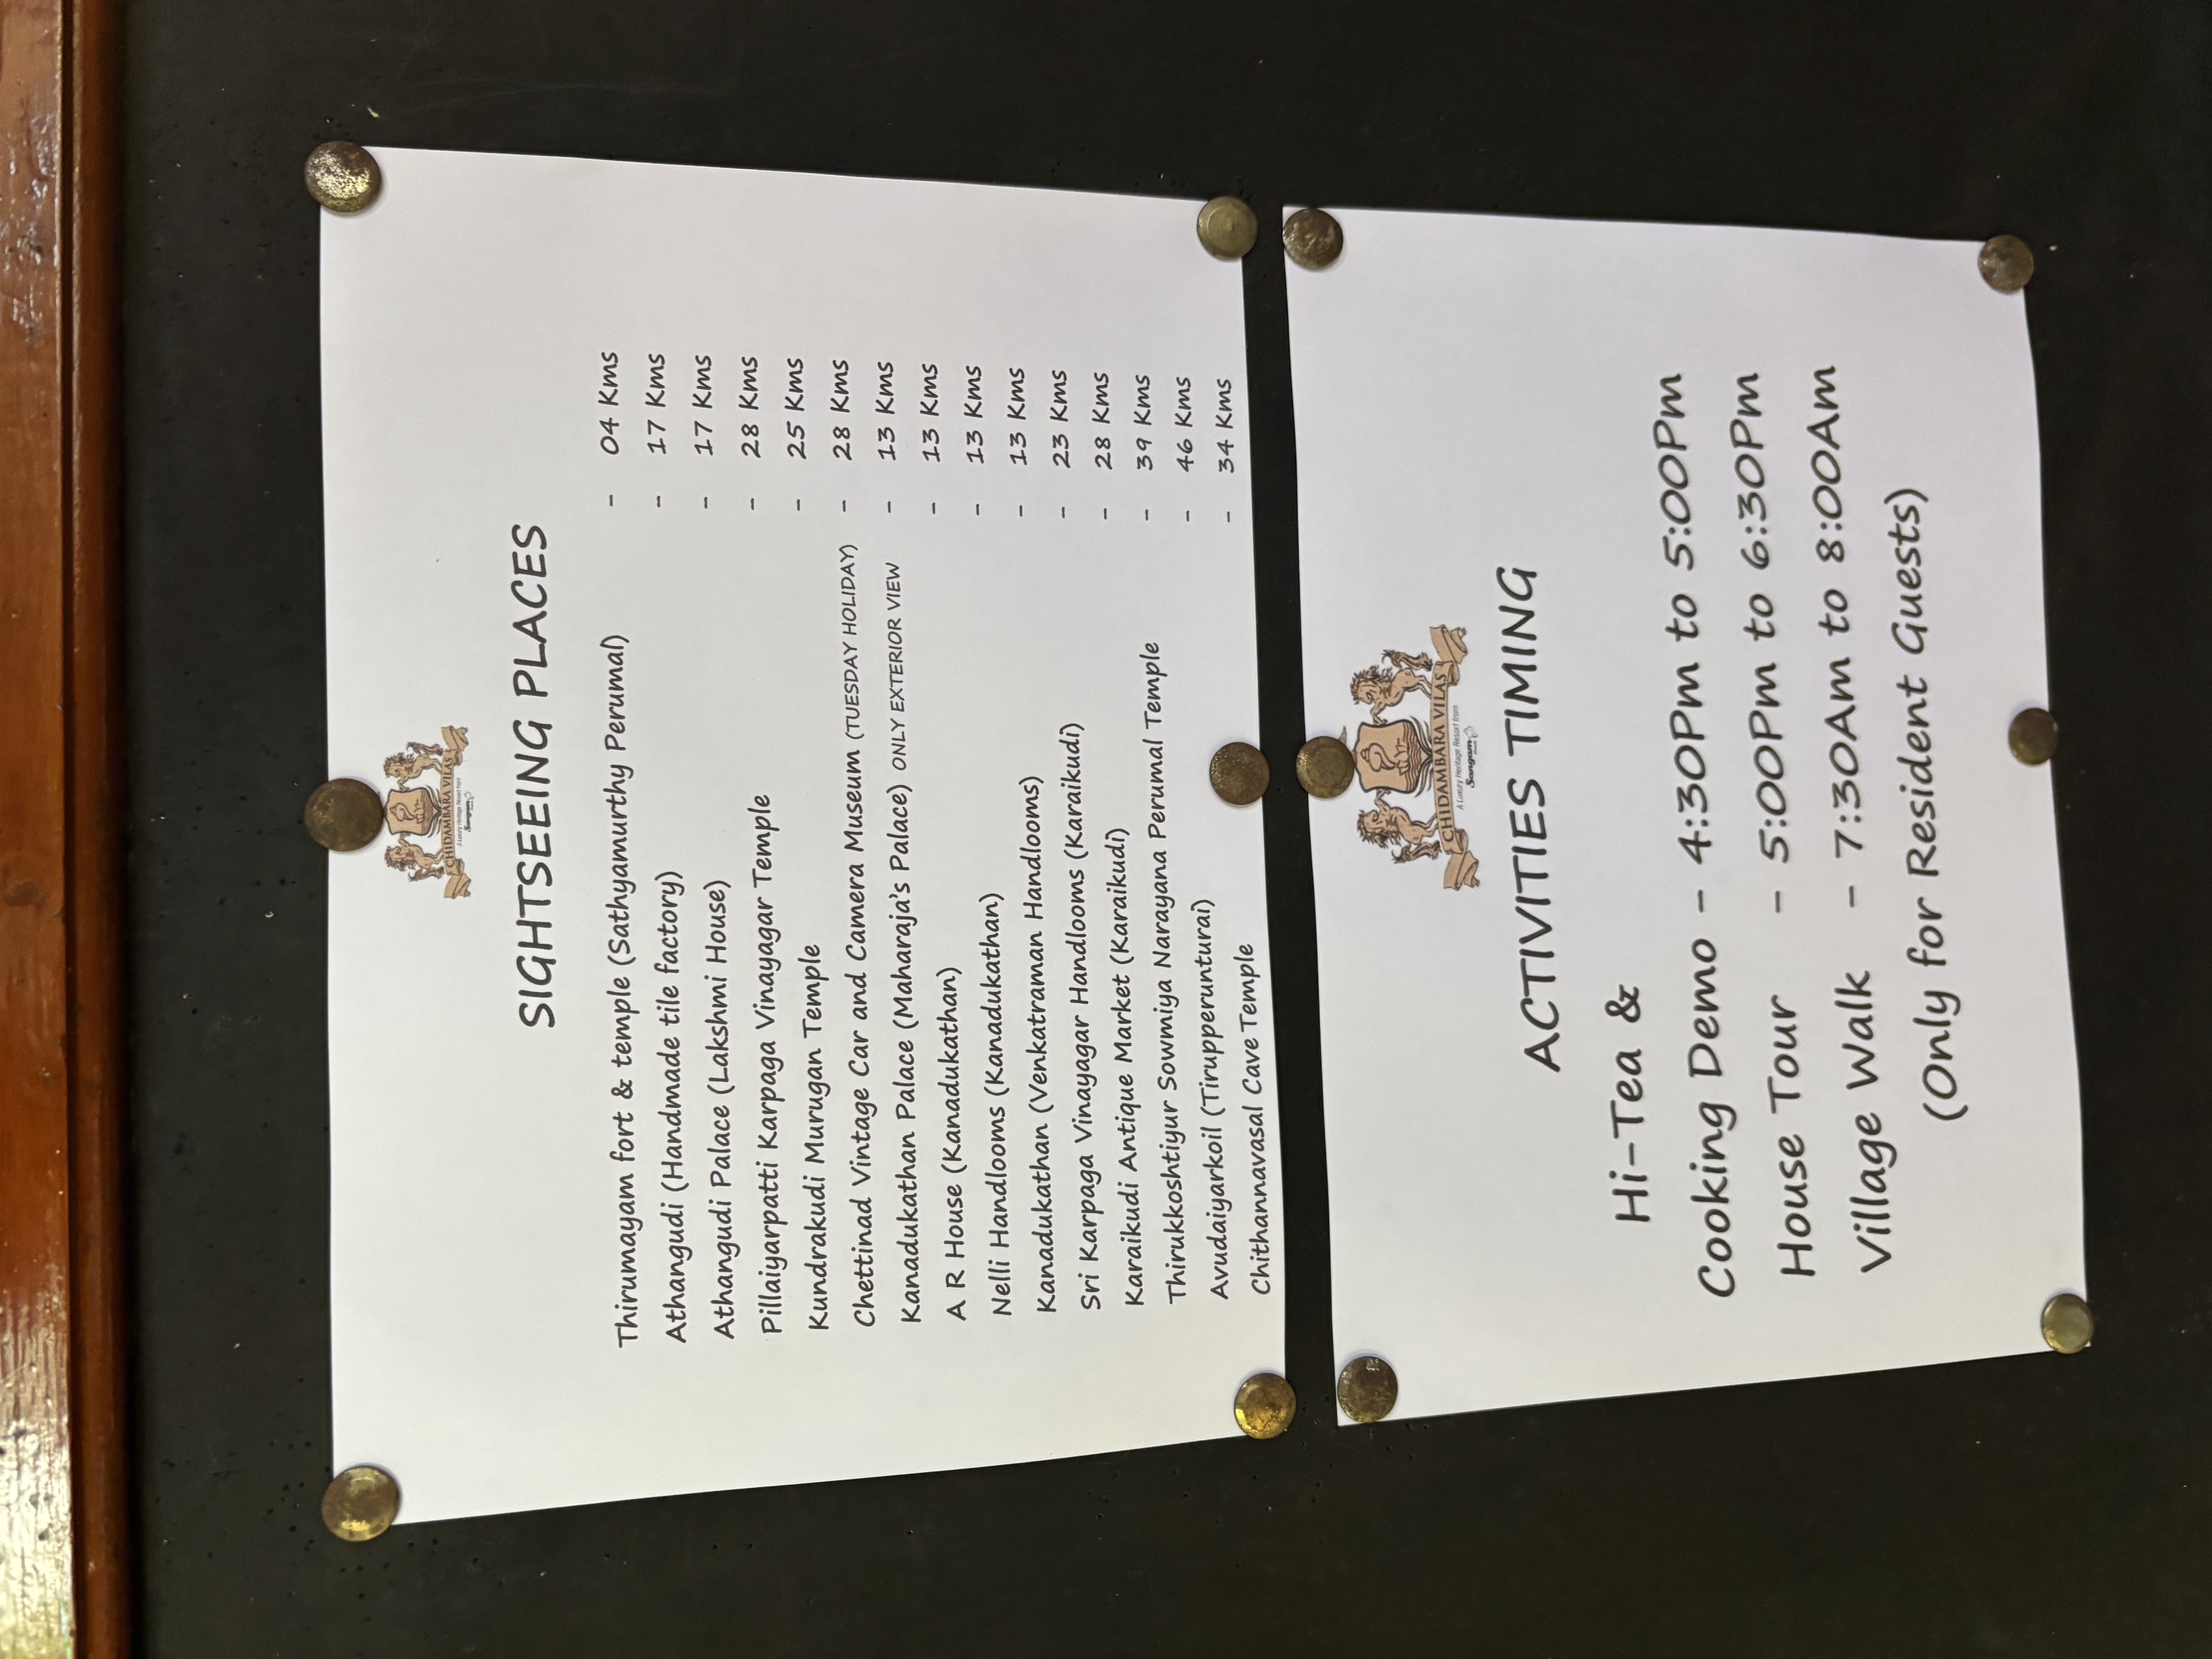 CHIDAMBARA VILAS
A Luxury Heritage Resort from
Sangam
SIGHTSEEING PLACES
Thirumayam fort & temple (Sathyamurthy Perumal) - 04 Kms
Athangudi (Handmade tile factory) - 17 Kms
Athangudi Palace (Lakshmi House) - 17 Kms
Pillaiyarpatti Karpaga Vinayagar Temple - 28 Kms
Kundrakudi Murugan Temple - 25 Kms
Chettinad Vintage Car and Camera Museum (TUESDAY HOLIDAY) - 28 Kms
Kanadukathan Palace (Maharaja's Palace) ONLY EXTERIOR VIEW - 13 Kms
A R House (Kanadukathan) - 13 Kms
Nelli Handlooms (Kanadukathan) - 13 Kms
Kanadukathan (Venkatraman Handlooms) - 13 Kms
Sri Karpaga Vinayagar Handlooms (Karaikudi) - 23 Kms
Karaikudi Antique Market (Karaikudi) - 28 Kms
Thirukkoshtiyur Sowmiya Narayana Perumal Temple - 39 Kms
Avudaiyarkoil (Tirupperunturai) - 46 Kms
Chithannavasal Cave Temple - 34 Kms
CHIDAMBARA VILAS
A Luxury Heritage Resort from
Sangam
ACTIVITIES TIMING
Hi-Tea &
Cooking Demo - 4:30Pm to 5:00Pm
House Tour - 5:00Pm to 6:30Pm
Village Walk - 7:30Am to 8:00Am
(Only for Resident Guests)